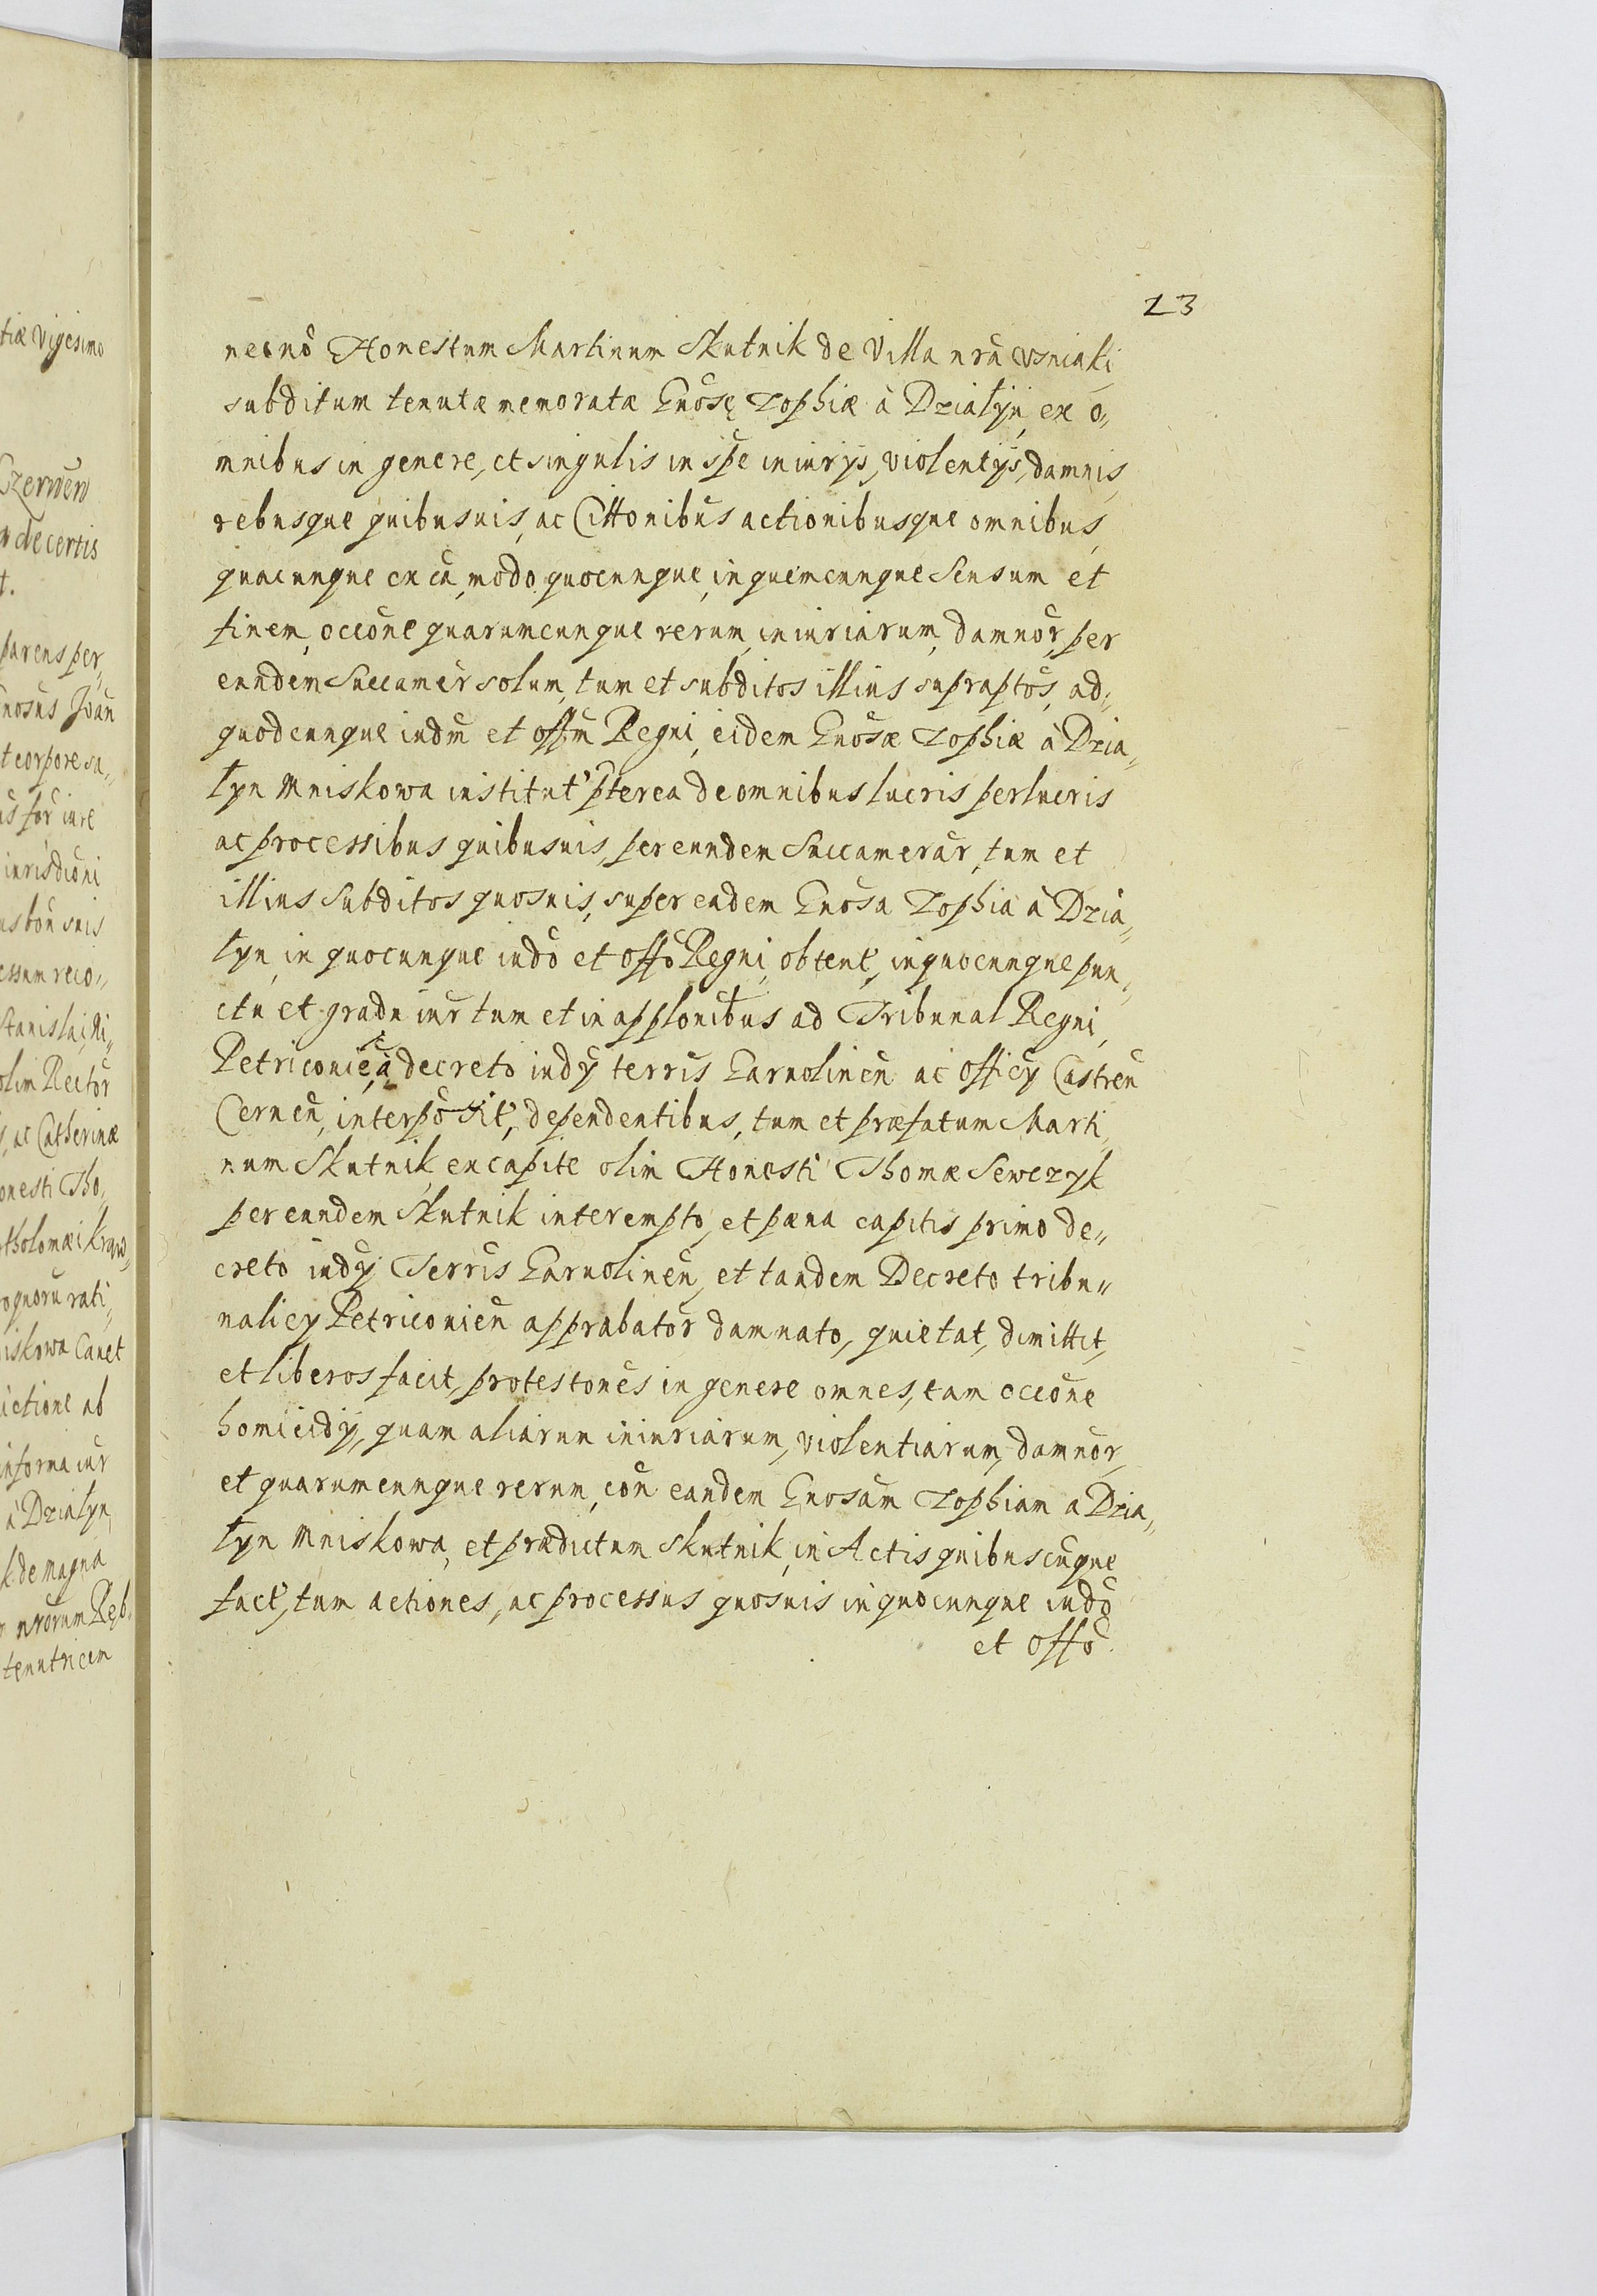 tiæ Vigesimo
Czerwen
de certis
t.
parens per
nosus Joān
t corpore sa„
iurisdicōni
us bon̄ suis
essum reco„
Stanislai Ri„
olim Rectōr
, ac Catherinæ
onesti Tho„
tholomæi Kraw„
oquorū rati„
iskowa Cauet
ictione ab
informa iur̄
à Dzialyn
k de magna
nrōrum Reb„
tenutricem
23
necnō Honestum Martinum Skutnik de Villa nrā Vsniaki
subditum tenutæ memoratæ Gnosę Zophiæ à Dzialyn, ex o„
mnibus in genere, et singulis in spē iniurÿs, violentÿs, damnis,
rebusque quibusuis, ac Cittonibūs actionibusque omnibus,
quacunque ex cā, modo quocunque, in quemcunque Sensum et
finem, occōne quarumcunque rerum, iniuriarum, damnōr, per
eundem Succamēr solum, tum et subditos illius supraptōs, ad„
quodcunque iudm̄ et offm̄ Regni, eidem Gnosæ Zophiæ à Dzia„
lyn Mniskowa institut' pterea de omnibus lucris perlucris
ac processibus quibusuis, per eundem Succamerār, tum et
illius Subditos quosuis, super eadem Gnōsa Zophia à Dzia„
lyn, in quocunque iudō et offō Regni, obtent', in quocunque pun„
ctu et gradu iur̄ tum et in applōnibus ad Tribunal Regni,
Petriconiē, à decreto iudÿ terrīs Garuolinēn ac officÿ Castrēn
Cernēn, interpōsit', dependentibus, tum et præfatum Marti„
num Skutnik, ex capite olim Honesti Thomæ Sewczyk
per eundem Skutnik interempto, et pæna capitis primo de„
creto iudÿ Terrīs Garuolinēn, et tandem Decreto tribu„
nalicÿ Petriconiēn approbatōr damnato, quietat, dimittit,
et liberos facit, protestonēs in genere omnes, tam occōne
homicidÿ, quam aliarum iniuriarum, violentiarum, damnōr,
et quarumcunque rerum, cōn eandem Gnosām Zophiam a Dzia„
lyn Mniskowa, et prædictum Skutnik, in Actis quibuscūque
fact', tum actiones, ac processus quosuis in quocunque iudō
et offō